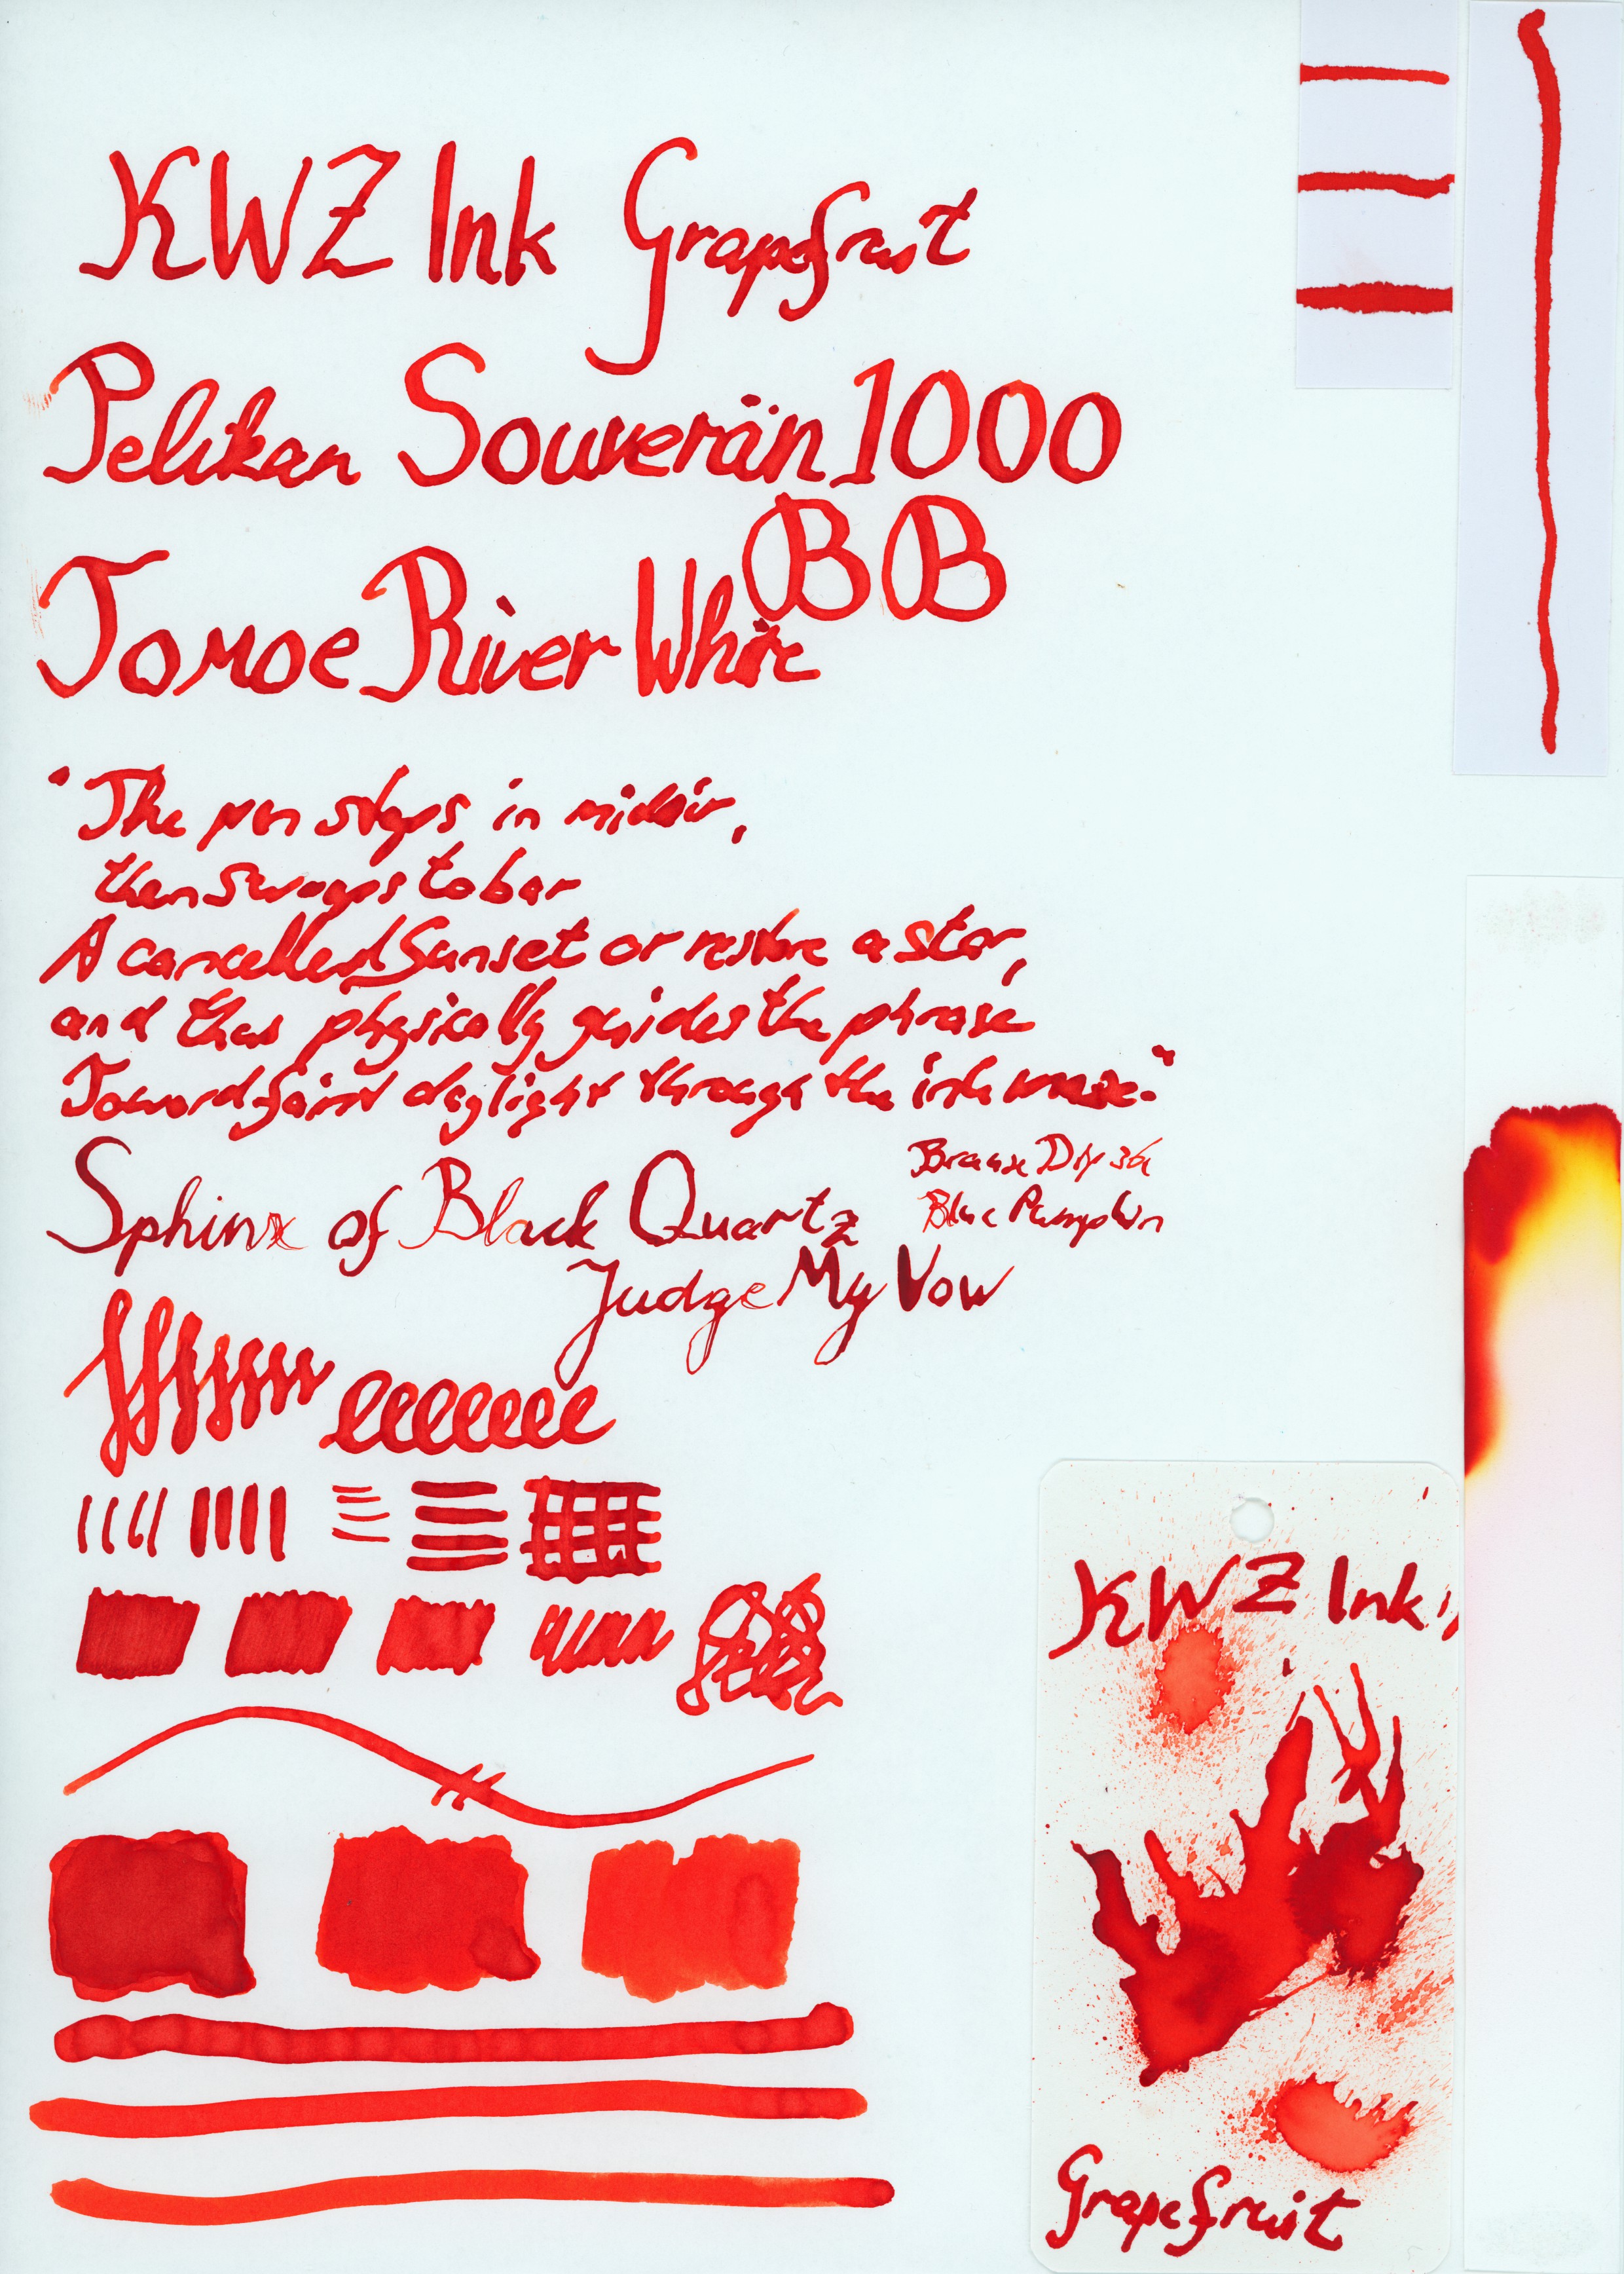 KWZ Ink Grapefruit
Pelikan Souverän 1000
BB
Tomoe River White
"The pen stops in midair,
then swoops to bar
A cancelled Sunset or restore a star,
and thus physically guides the phrase
Toward faint daylight through the ink maze."
Sphinx of Black Quartz
Judge My Vow
Brause Dip
Blue Pumpkin
KWZ Ink
Grapefruit